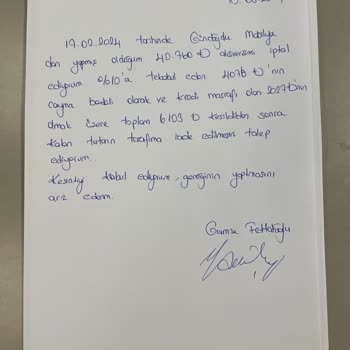 17.02.2024 tarihinde Gündoğdu Mobilya
dan yapmış olduğum 40.760 ₺ alışverişimi iptal
ediyorum %10'a tekabül eden 4076 ₺'nin
cayma bedeli olarak ve kredi masrafı olan 2027'nin
olmak üzere toplam 6103 ₺ kesildikten sonra
kalan tutarın tarafıma iade edilmesini talep
ediyorum.
Kesintiyi kabul ediyorum, gereğinin yapılmasını
arz ederim.
Gamze